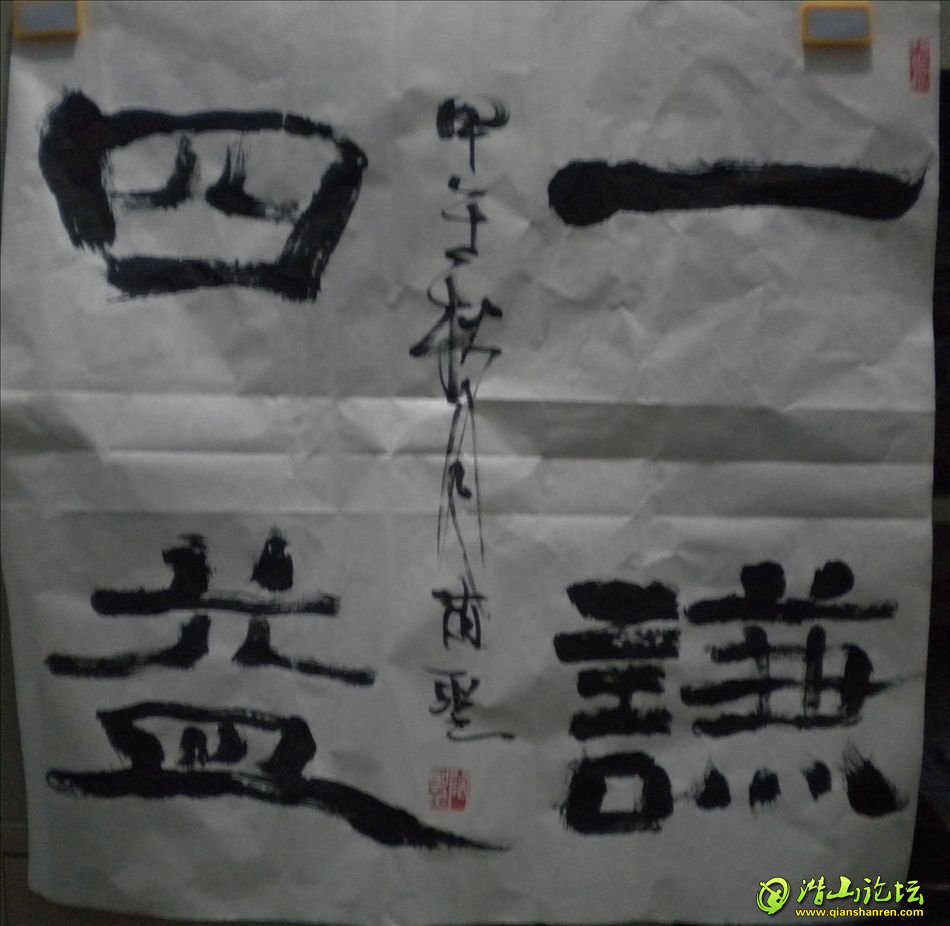 一謙
四益
甲午秋月南
潜山论坛
www.qianshanren.com